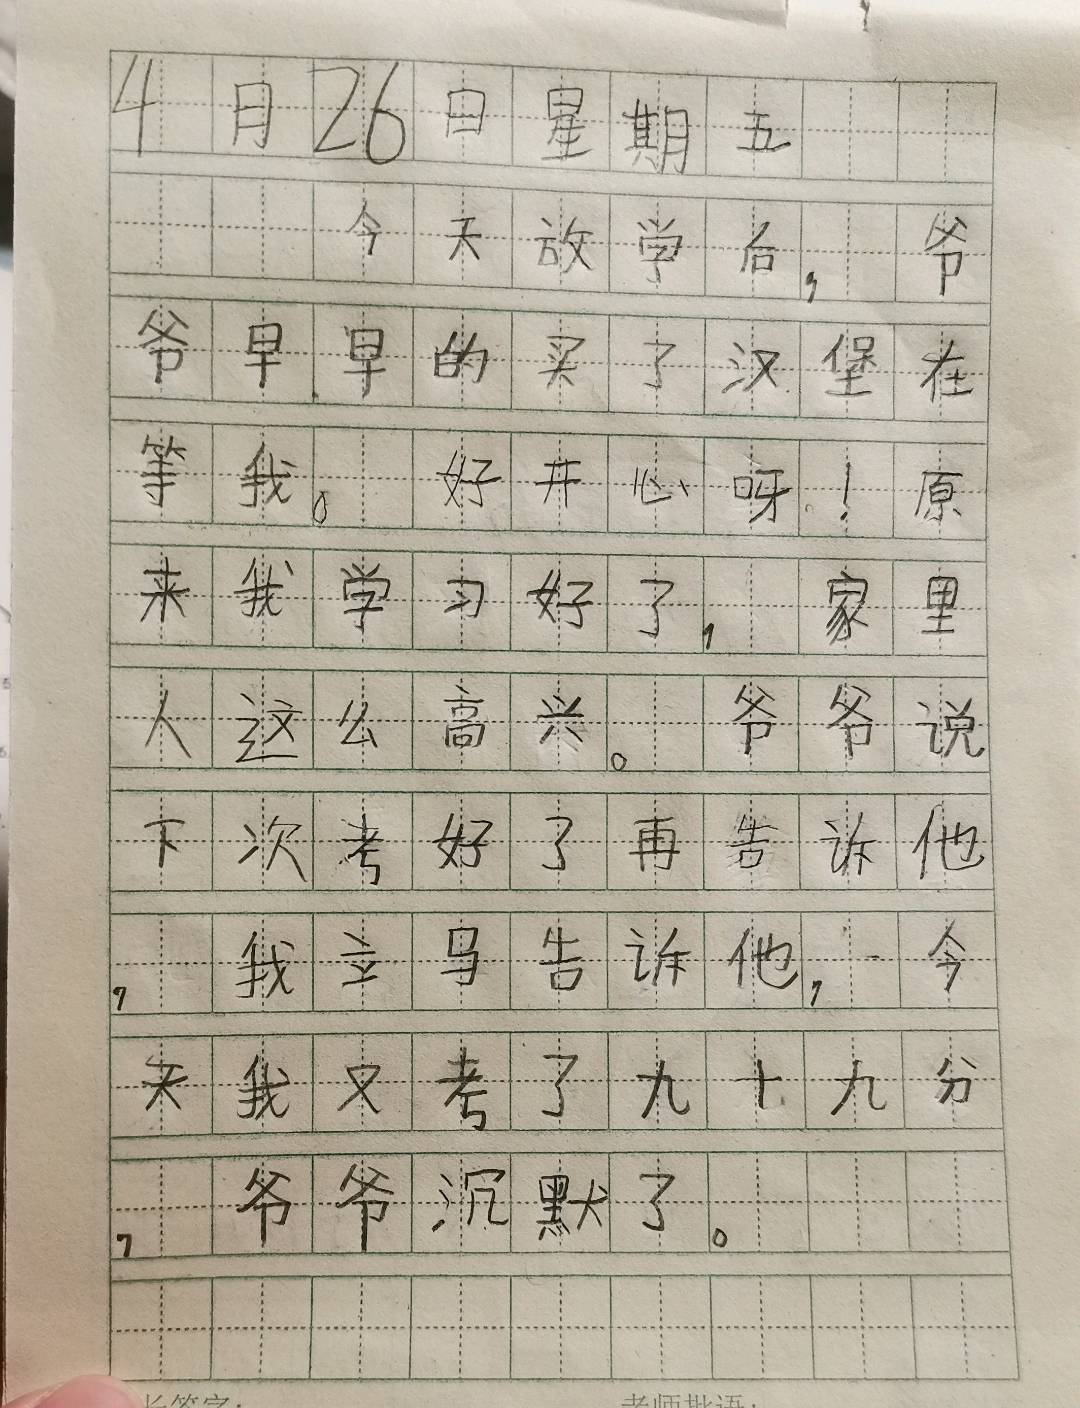 4月26日星期五
今天放学后，爷
爷早早的买了汉堡在
等我。好开心呀！原
来我学习好了，家里
人这么高兴。爷爷说
下次考好了再告诉他
，我立马告诉他，今
天我又考了九十九分
，爷爷沉默了。
长签字： 老师批语：